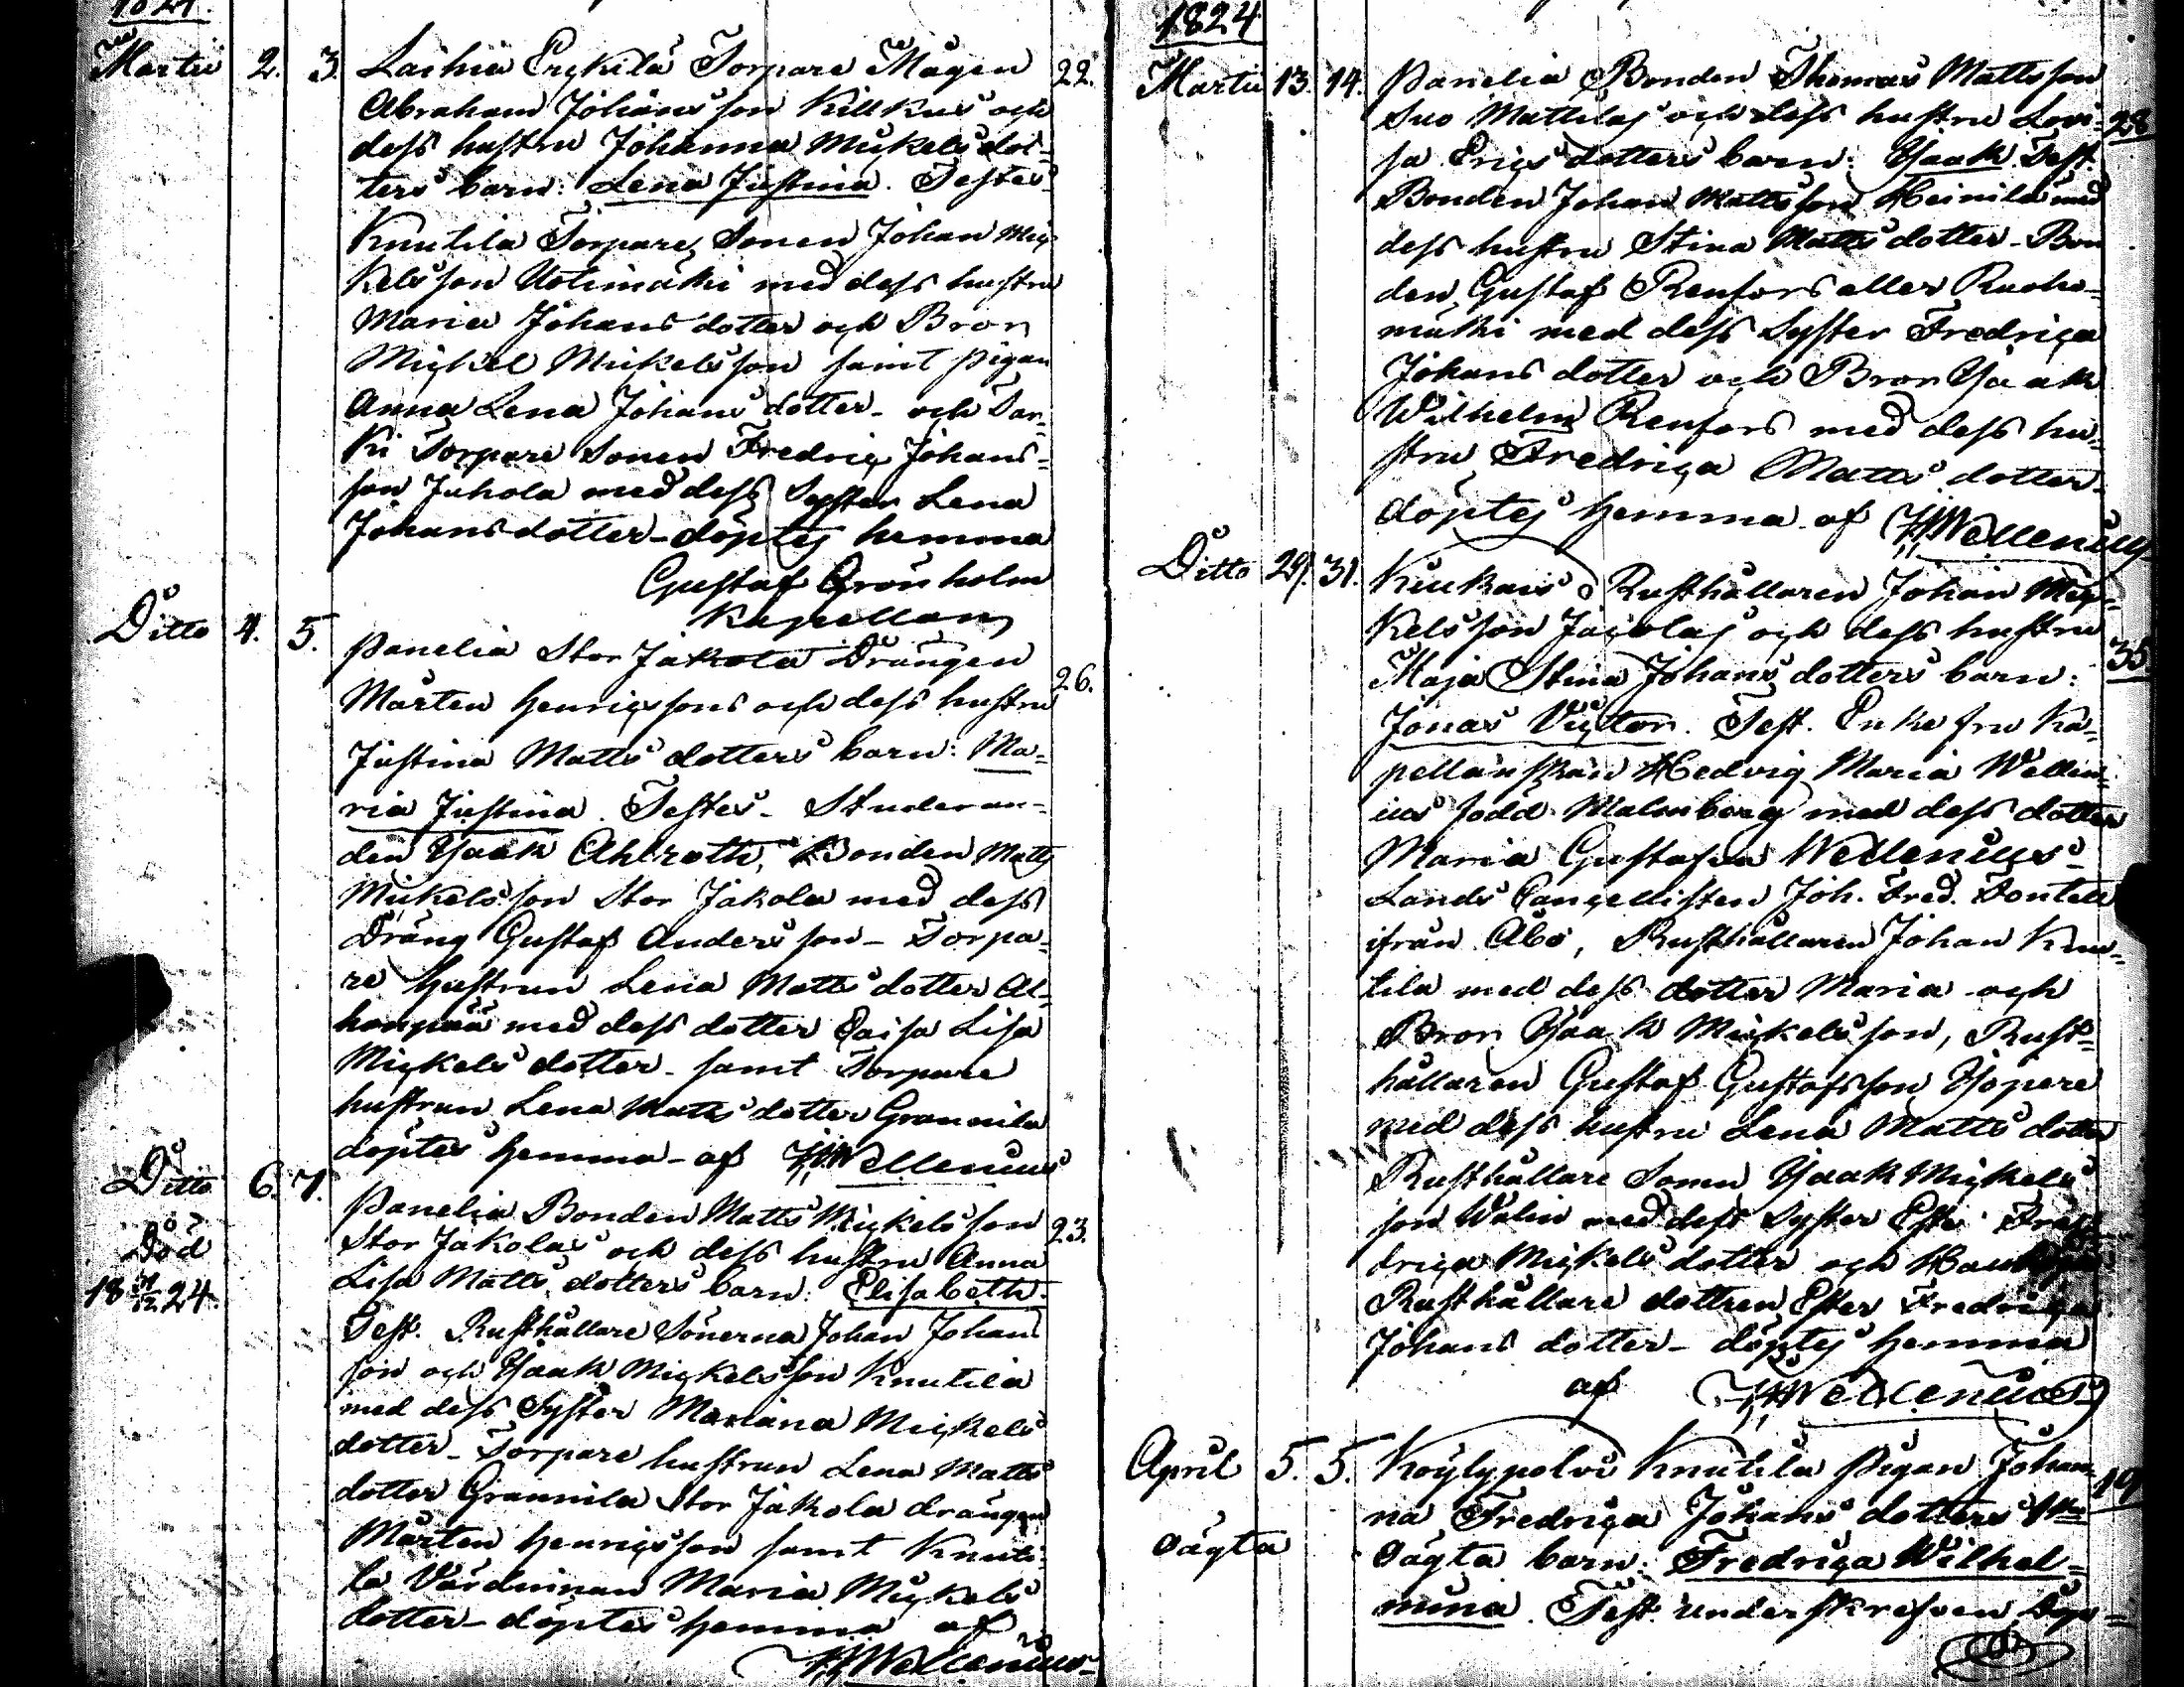 1824.
Martii 2. 3. Laihia Erckilä Torpare Mågen 22.
Abraham Johansson Killkus och
dess hustru Johanna Mickelsdot-
ters barn: Lena Justina. Testes
Knutila Torpare Sonen Johan Mic-
kelsson Uotimäki med dess hustru
Maria Johans dotter och Bror
Mickel Mickelsson samt pigan
Anna Lena Johans dotter - och Sor-
ki Torpare Sonen Fredric Johans-
son Juhola med dess Syster Lena
Johansdotter - döptes hemma
Gustaf Grönholm
Kapellan
Ditto 4. 5. Panelia Stor Jakola Drängen 26.
Mårten Henricssons och dess hustru
Justina Matts dotters barn: Ma-
ria Justina. Testes - Studeran-
den Isaak Ahlroth, Bonden Matts
Mickelsson Stor Jakola med dess
Dräng Gustaf Andersson - Torpa-
re hustrun Lena Matts dotter Al-
honpää med dess dotter Caisa Lisa
Mickels dotter - samt Torpare
hustrun Lena Matts dotter Grannila
döptes hemma - af Wellenius
Ditto 6. 7. Panelia Bonden Matts Mickelsson 23.
Död Stor Jakolas och dess hustru Anna
18 24. Lisa Matts dotters barn: Elisabeth.
Test. Rusthållare Sönerna Johan Johans
son och Isaak Mickelsson Knutila
med dess Syster Mariana Mickels
dotter - Torpare hustrun Lena Matts
dotter Grannila Stor Jakola drängen
Mårten Henricsson samt Knuti-
la Värdinnan Maria Mickels
dotter - döptes hemma af
Wellenius
1824
Martii 13. 14. Panelia Bonden Thomas Mattsson
Suo Mattilas och dess hustru Lovi- 28
sa Erics dotters barn: Isaak Test.
Bonden Johan Mattsson Heinilä med
dess hustru Stina Matts dotter - Bon
den Gustaf Renfors eller Ruoho-
mäki med dess Syster Fredrica
Johans dotter och Bror Isaak
Wilhelm Renfors med dess hu-
stru Fredrica Matts dotter -
döptes hemma af Wellenius
Ditto 29. 31. Kiukais Rusthållaren Johan Mic-
kelsson Jaocolas och dess hustru
Maja Stina Johans dotters barn: 35
Jonas Victor. Test. Enke fru Ka-
pellanskan Hedvig Maria Wellen-
ius född Malmberg med dess dotter
Maria Gustafva Wellenius -
Lands Cancellisten Joh. Fred. Fontell
ifrån Åbo, Rusthållaren Johan Knu-
tila med dess dotter Maria och
Bror Isaak Mickelsson, Rust-
hållaren Gustaf Gustafsson Isopere
med dess hustru Lena Matts dotter
Rusthållare Sonen Isaak Mickels
son Walin med dess Syster Ester Fred
drica Mickels dotter och
Rusthållare dottren Ester Fredrica
Johans dotter - döptes hemma
af Wellenius
April 5. 5. Köylypolvi Knutila Pigan Johan- 19
na Fredrica Johans dotters
oägta oägta barn: Fredrica Wilhel-
mina. Test. underskrefven